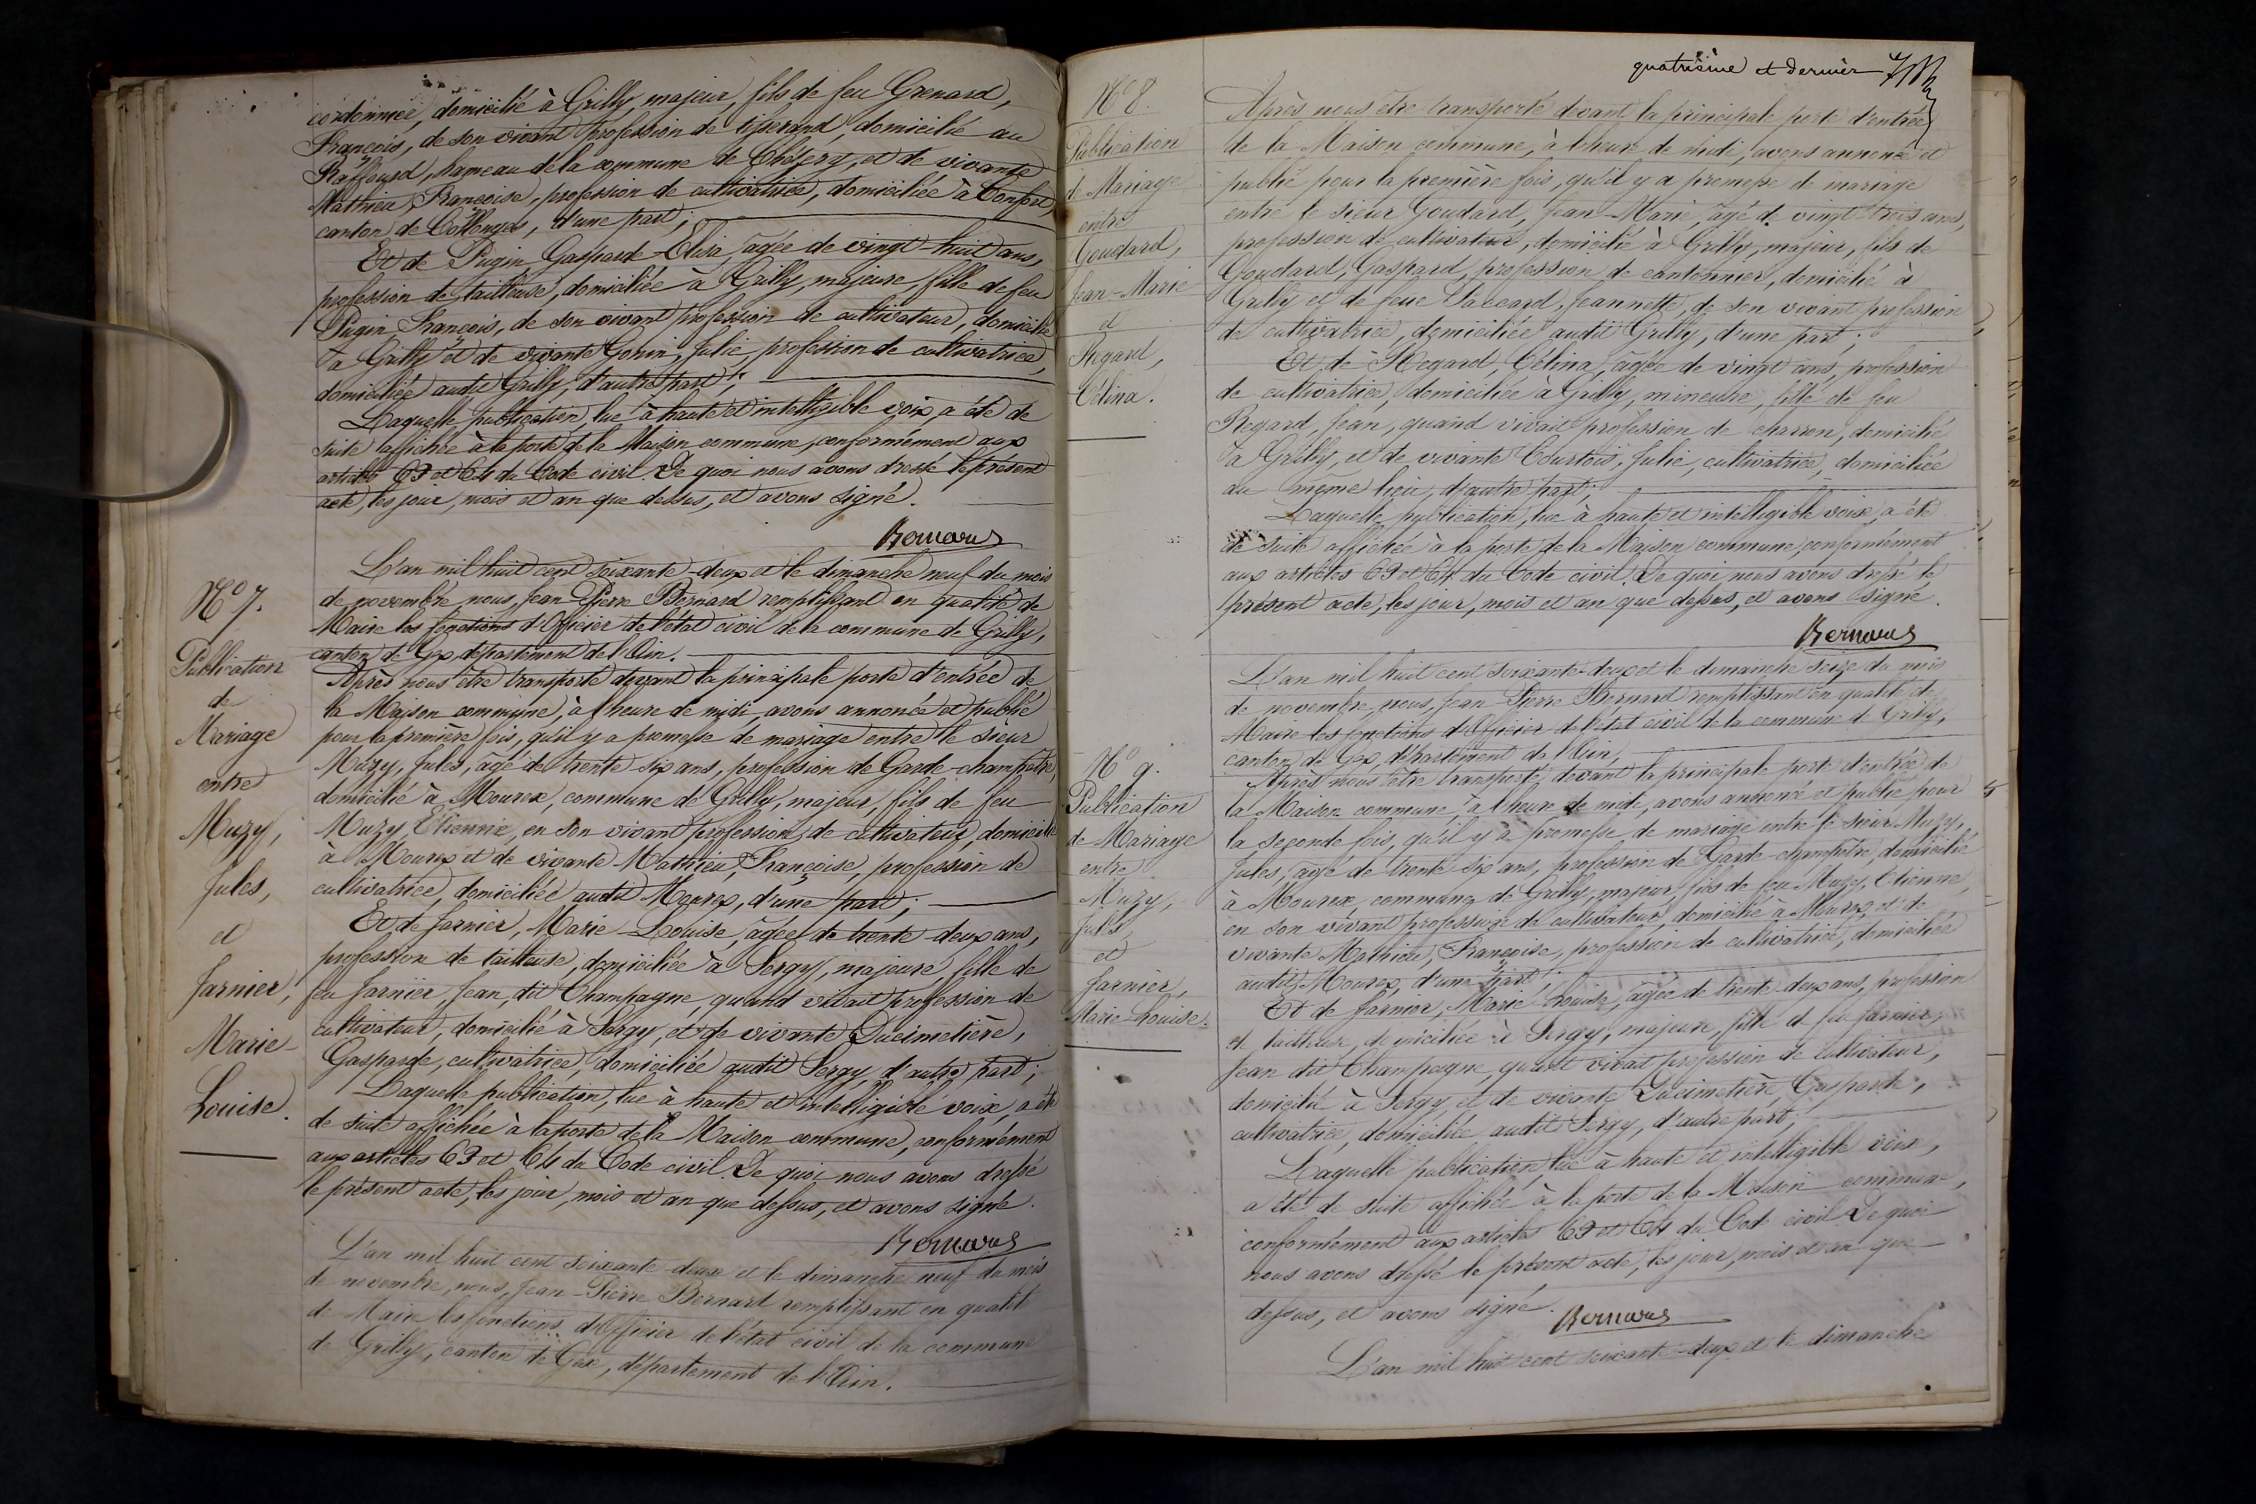 cordonnier, domicilié à Grilly, majeur, fils de feu Grenard,
François, de son vivant profession de tisserand, domicilié au
hameau de la commune de Chézery, et de vivante
Mathieu, Françoise, profession de cultivatrice, domiciliée à Confort,
canton de Collonges, d'une part;
Et de Pugin Gasparde-Elisa, âgée de vingt-huit ans,
profession de tailleuse, domiciliée à Grilly, majeure, fille de feu
Pugin François, de son vivant profession de cultivateur, domicilié
à Grilly et de vivante Gonin, Julie, profession de cultivatrice,
domiciliée audit Grilly, d'autre part;
Laquelle publication, lue à haute et intelligible voix, a été de
suite affichée à la porte de la Maison commune, conformément aux
articles 63 et 64 du Code civil. De quoi nous avons dressé le présent
acte, les jour, mois et an que dessus, et avons signé.
Bernard
N° 7.
Publication
de
Mariage
entre
Muzy,
Jules,
et
Jarnier,
Marie-
Louise.
L'an mil huit cent soixante-deux et le dimanche neuf du mois
de novembre, nous, Jean-Pierre Bernard remplissant en qualité de
Maire les fonctions d'Officier de l'état civil de la commune de Grilly,
canton de Gex, département de l'Ain.
Après nous être transporté devant la principale porte d'entrée de
la Maison commune, à l'heure de midi, avons annoncé et publié
pour la première fois, qu'il y a promesse de mariage entre le sieur
Muzy, Jules, âgé de trente-six ans, profession de Garde-champêtre,
domicilié à Mourex, commune de Grilly, majeur, fils de feu
Muzy, Etienne, en son vivant profession de cultivateur, domicilié
à Mourex et de vivante Mathieu, Françoise, profession de
cultivatrice, domiciliée audit Mourex, d'une part;
Et de Jarnier, Marie-Louise, âgée de trente-deux ans,
profession de tailleuse, domiciliée à Sergy, majeure, fille de
feu Jarnier, Jean, dit Champagne, quand vivait profession de
cultivateur, domicilié à Sergy, et de vivante Ducimetière,
Gasparde, cultivatrice, domiciliée audit Sergy, d'autre part;
Laquelle publication, lue à haute et intelligible voix, a été
de suite affichée à la porte de la Maison commune, conformément
aux articles 63 et 64 du Code civil. De quoi nous avons dressé
le présent acte, les jour, mois et an que dessus, et avons signé.
Bernard
L'an mil huit cent soixante-deux et le dimanche neuf du mois
de novembre, nous, Jean-Pierre Bernard remplissant en qualité
de Maire les fonctions d'Officier de l'état civil de la commune
de Grilly, canton de Gex, département de l'Ain.
quatrième et dernier
N° 8.
Publication
de Mariage
entre
Goudard,
Jean-Marie
et
Regard,
Célina.
Après nous être transporté devant la principale porte d'entrée
de la Maison commune, à l'heure de midi, avons annoncé et
publié pour la première fois, qu'il y a promesse de mariage
entre le sieur Goudard, Jean-Marie, âgé de vingt-trois ans,
profession de cultivateur, domicilié à Grilly, majeur, fils de
Goudard, Gaspard, profession de cantonnier, domicilié à
Grilly et de feue Jeannette, de son vivant profession
de cultivatrice, domiciliée audit Grilly, d'une part;
Et de Regard, Célina, âgée de vingt ans, profession
de cultivatrice, domiciliée à Grilly, mineure, fille de feu
Regard, Jean, quand vivait profession de charron, domicilié
à Grilly, et de vivante Courtois, Julie, cultivatrice, domiciliée
au même lieu, d'autre part;
Laquelle publication, lue à haute et intelligible voix, a été
de suite affichée à la porte de la Maison commune, conformément
aux articles 63 et 64 du Code civil. De quoi nous avons dressé le
présent acte, les jour, mois et an que dessus, et avons signé.
Bernard
L'an mil huit cent soixante-deux et le dimanche seize du mois
de novembre, nous, Jean-Pierre Bernard remplissant en qualité de
Maire les fonctions d'Officier de l'état civil de la commune de Grilly,
canton de Gex, département de l'Ain,
N° 9.
Publication
de Mariage
entre
Muzy,
Jules,
et
Jarnier,
Marie-Louise.
Après nous être transporté devant la principale porte d'entrée de
la Maison commune, à l'heure de midi, avons annoncé et publié pour
la seconde fois, qu'il y a promesse de mariage entre le sieur Muzy,
Jules, âgé de trente-six ans, profession de Garde-champêtre, domicilié
à Mourex, commune de Grilly, majeur, fils de feu Muzy, Etienne,
en son vivant profession de cultivateur, domicilié à Mourex, et de
vivante Mathieu, Françoise, profession de cultivatrice, domiciliée
audit Mourex, d'une part;
Et de Jarnier, Marie-Louise, âgée de trente-deux ans, profession
de tailleuse, domiciliée à Sergy, majeure, fille de feu Jarnier,
Jean dit Champagne, quand vivait profession de cultivateur,
domicilié à Sergy, et de vivante Ducimetière, Gasparde,
cultivatrice, domiciliée audit Sergy, d'autre part;
Laquelle publication, lue à haute et intelligible voix,
a été de suite affichée à la porte de la Maison commune,
conformément aux articles 63 et 64 du Code civil. De quoi
nous avons dressé le présent acte, les jour, mois et an que
dessus, et avons signé.
Bernard
L'an mil huit cent soixante-deux et le dimanche